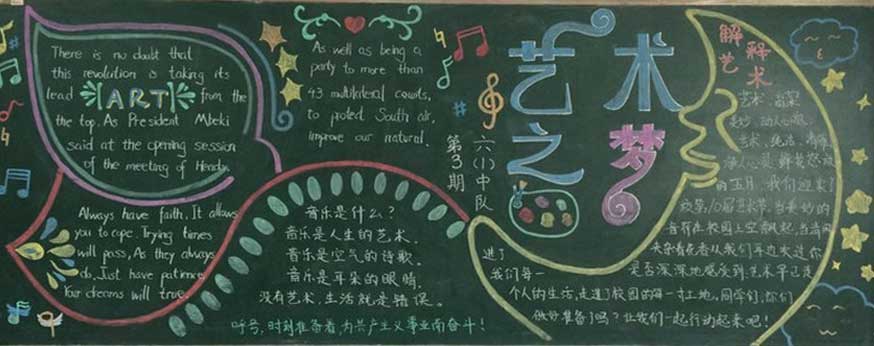 There is no doubt that
this revolution is taking its
lead ART from the
the top. As President Mbeki
said at the opening session
of the meeting of Heads,
As well as being a
party to more than
43 multilateral
to South air,
improve our natural.
Always have faith. It allows
you to cope. Trying times
will pass, As they always
do. Just have patience
Your dreams will true.
第3期
六(1)中队
音乐是什么?
音乐是人生的艺术.
音乐是空气的诗歌.
音乐是耳朵的眼睛.
没有艺术.生活就是错误。
呼号,时刻准备着,为共产主义事业而奋斗!
艺术
之梦
解释
艺术
艺术、高
美妙、动人心
艺术、纯洁、清
净人心是鲜花怒放
的五月,我们迎来了
校第10届艺术节,当美妙的
音符在校园上空飘起,当清风
夹杂着花香从我们耳边吹过你
是否深深地感受到艺术早已走
进了
我们每一
个人的生活,走遍了校园的每一寸土地。同学们,你们
做好准备了吗?让我们一起行动起来吧!